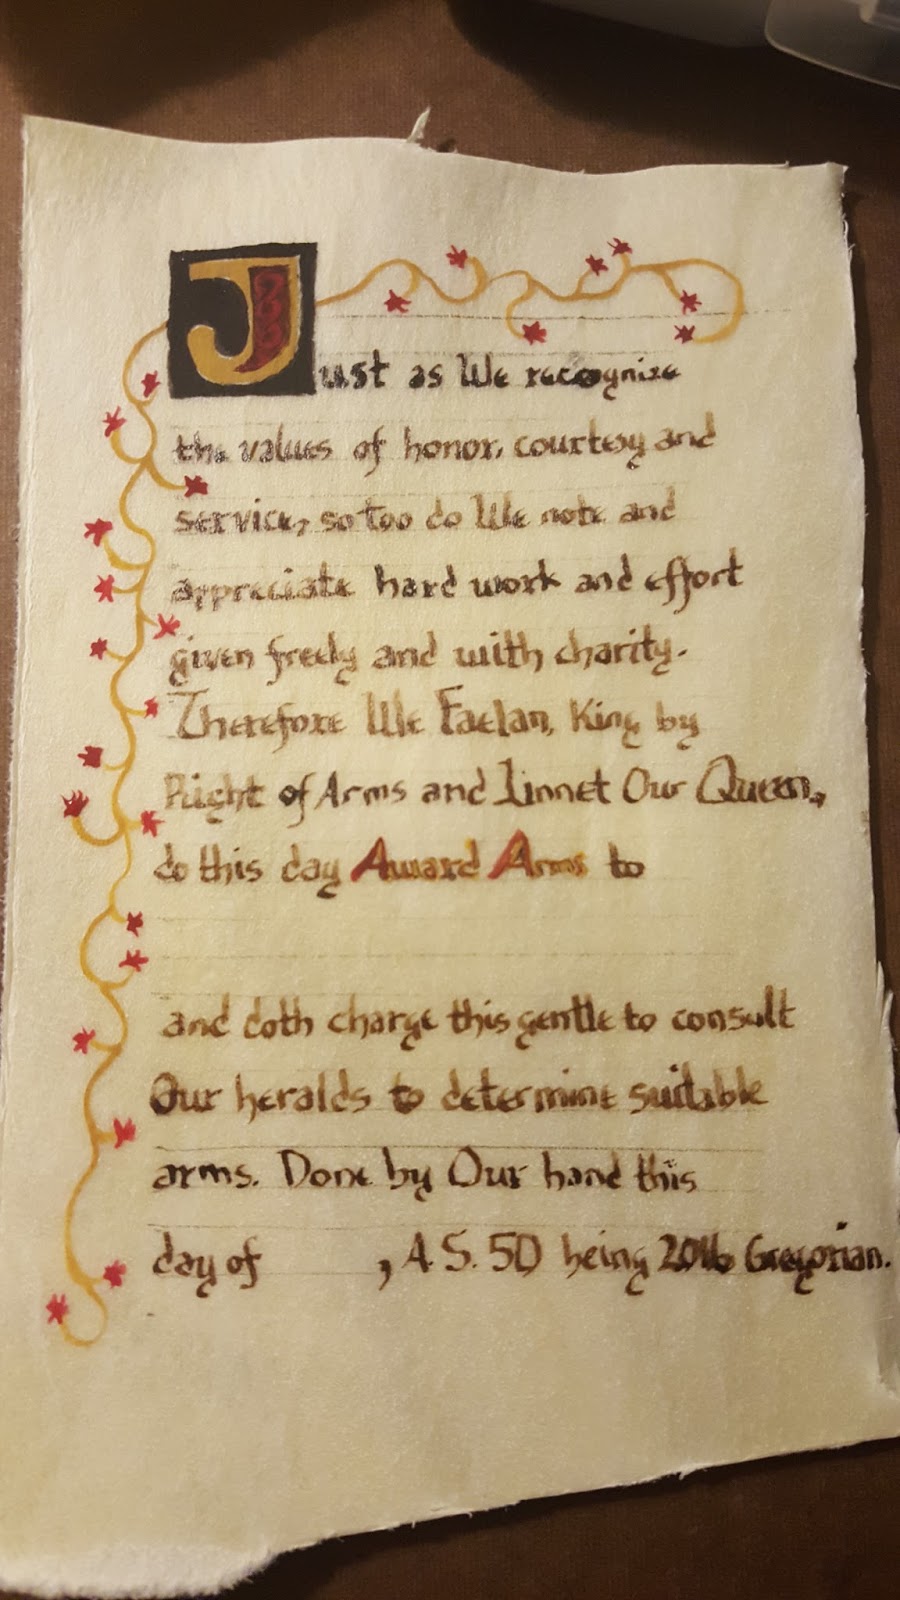 Just as We recognize
the values of honor, courtesy and
service, so too do We note and
appreciate hard work and effort
given freely and with charity.
Therefore We Faelan, King by
Right of Arms and Linnet Our Queen,
do this day Award Arms to
and doth charge this gentle to consult
Our heralds to determine suitable
arms. Done by Our hand this
day of , A.S. 50 being 2016 Gregorian.